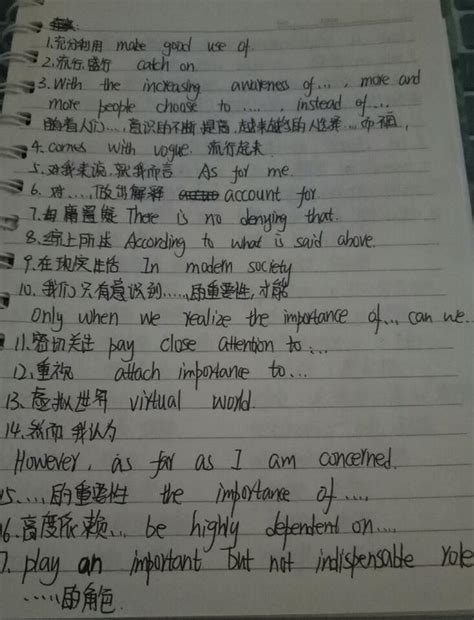 1.充分利用 make good use of
2.流行,盛行 catch on
3.With the increasing awareness of..., more and
more people choose to ....., instead of....
随着人们....意识的不断提高,越来越多的人选择...而不是,
4. comes with vogue. 流行起来.
5.对我来说,就我而言 As for me.
6. 对....,做出解释 account for
7.毋庸置疑 There is no denying that.
8.综上所述 According to what is said above.
9.在现实生活 In modern society
10. 我们只有意识到.....的重要性,才能
Only when we realize the importance of... can we...
11.密切关注 pay close attention to....
12.重视 attach importance to...
13.虚拟世界 virtual world.
14.然而 我认为
However, as far as I am concerned.
15.....的重要性 the importance of ....
16.高度依赖... be highly dependent on....
7. play an important but not indispensable role
.....的角色.